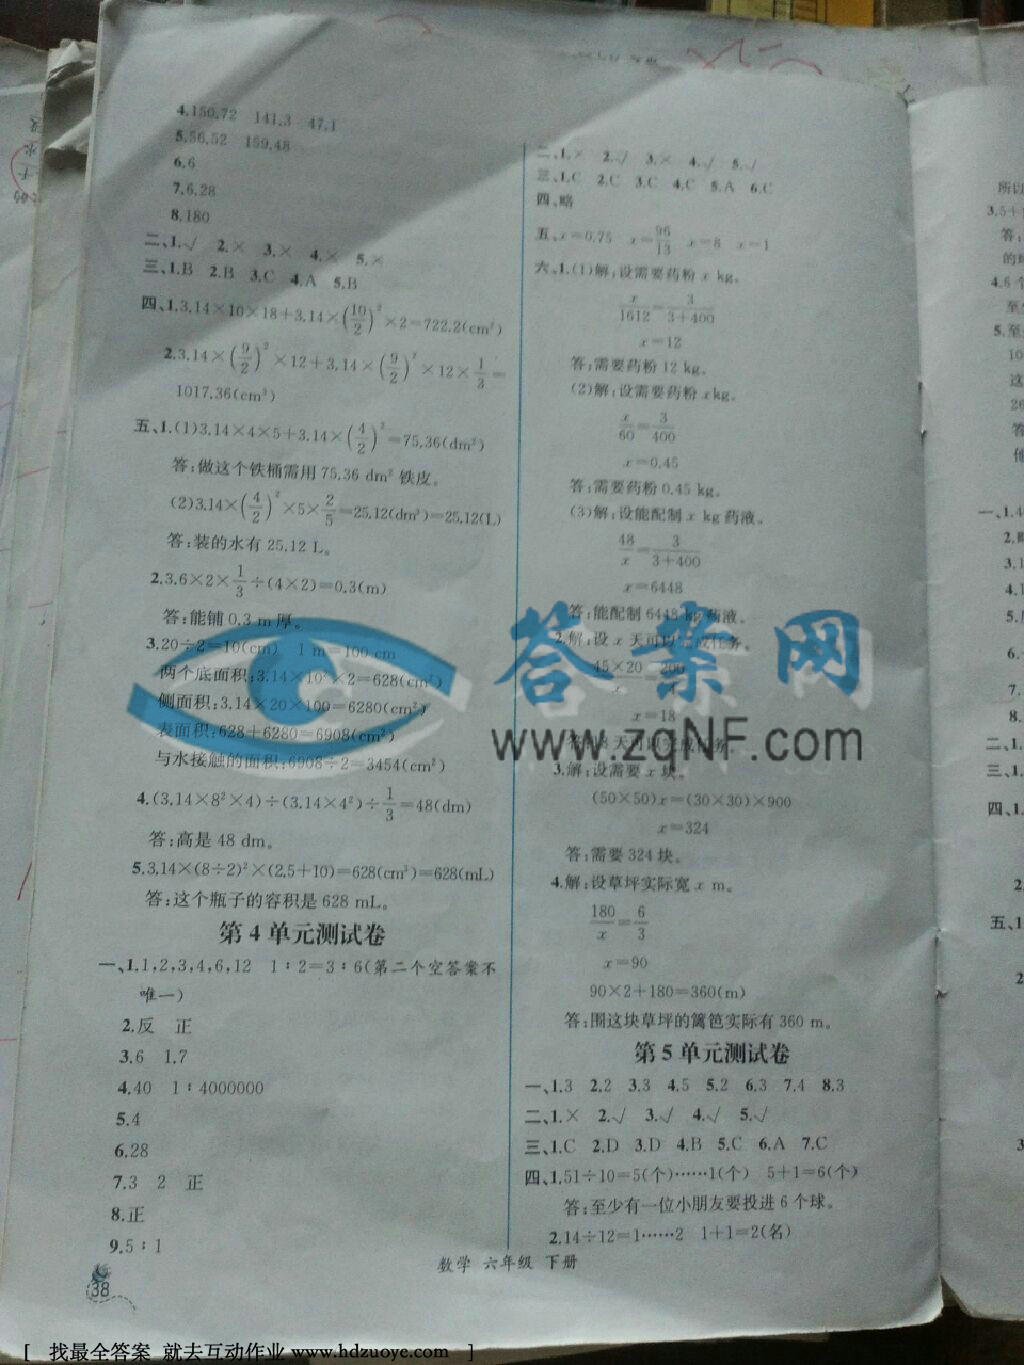 4.150.72 141.3 47.1
5.56.52 159.48
6.6
7.6.28
8.180
二、1.√ 2.× 3.× 4.× 5.×
三、1.B 2.B 3.C 4.A 5.B
四、1.3.14×10×18+3.14×(10/2)²×2=722.2(cm²)
2.3.14×(9/2)²×12+3.14×(9/2)²×12×1/3=
1017.36(cm³)
五、1.(1)3.14×4×5+3.14×(4/2)²=75.36(dm²)
答:做这个铁桶需用 75.36 dm² 铁皮。
(2)3.14×(4/2)²×5×2/5=25.12(dm³)=25.12(L)
答:装的水有 25.12 L。
2.3.6×2×1/3÷(4×2)=0.3(m)
答:能铺 0.3 m 厚。
3.20÷2=10(cm) 1 m=100 cm
两个底面积:3.14×10²×2=628(cm²)
侧面积:3.14×20×100=6280(cm²)
表面积:628+6280=6908(cm²)
与水接触的面积:6908÷2=3454(cm²)
4.(3.14×8²×4)÷(3.14×4²)÷1/3=48(dm)
答:高是 48 dm。
5.3.14×(8÷2)²×(2.5+10)=628(cm³)=628(mL)
答:这个瓶子的容积是 628 mL。
第 4 单元测试卷
一、1.1,2,3,4,6,12 1∶2=3∶6(第二个空答案不
唯一)
2.反 正
3.6 1.7
4.40 1∶4000000
5.4
6.28
7.3 2 正
8.正
9.5∶1
二、1.× 2.√ 3.× 4.√ 5.√
三、1.C 2.C 3.C 4.C 5.A 6.C
四、略
五、x=0.75 x=96/13 x=8 x=1
六、1.(1)解:设需要药粉 x kg。
x/1612=3/3+400
x=12
答:需要药粉 12 kg。
(2)解:设需要药粉 x kg。
x/60=3/400
x=0.45
答:需要药粉 0.45 kg。
(3)解:设能配制 x kg 药液。
48/x=3/3+400
x=6448
答:能配制 6448 kg 药液。
2.解:设 x 天可以完成任务。
45×20/x=200/4
x=18
答:18 天可以完成任务。
3.解:设需要 x 块。
(50×50)x=(30×30)×900
x=324
答:需要 324 块。
4.解:设草坪实际宽 x m。
180/x=6/3
x=90
90×2+180=360(m)
答:围这块草坪的篱笆实际有 360 m。
第 5 单元测试卷
一、1.3 2.2 3.3 4.5 5.2 6.3 7.4 8.3
二、1.× 2.√ 3.√ 4.√ 5.√
三、1.C 2.D 3.D 4.B 5.C 6.A 7.C
四、1.51÷10=5(个)……1(个) 5+1=6(个)
答:至少有一位小朋友要投进 6 个球。
2.14÷12=1……2 1+1=2(名)
数学 六年级 下册
38
答案网
www.zqNF.com
所以
3.5+
答:
的
4.6 个
至
5.至
10
这
26
答
他
一、1.4
2.略
3.1
4.1
5.
6.
7.
8.
二、1.
三、1.
四、1.
2
五、1.
2
3
[ 找最全答案 就去互动作业 www.hdzuoye.com ]